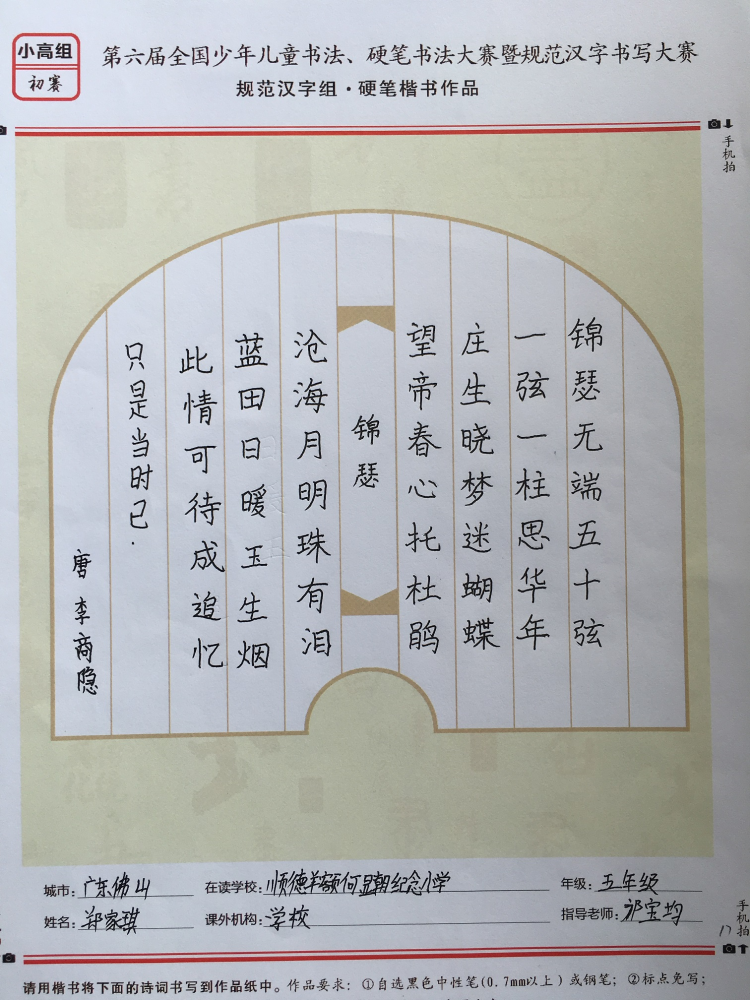 小高组
初赛
第六届全国少年儿童书法、硬笔书法大赛暨规范汉字书写大赛
规范汉字组·硬笔楷书作品
手机拍
锦瑟无端五十弦
一弦一柱思华年
庄生晓梦迷蝴蝶
望帝春心托杜鹃
锦瑟
沧海月明珠有泪
蓝田日暖玉生烟
此情可待成追忆
只是当时已.
唐 李商隐
城市：广东佛山
在读学校：顺德羊额何显朝纪念小学
年级：五年级
姓名：郑家琪
课外机构：学校
指导老师：祁宝均
手机拍
17
请用楷书将下面的诗词书写到作品纸中。作品要求：①自选黑色中性笔(0.7mm以上)或钢笔；②标点免写；